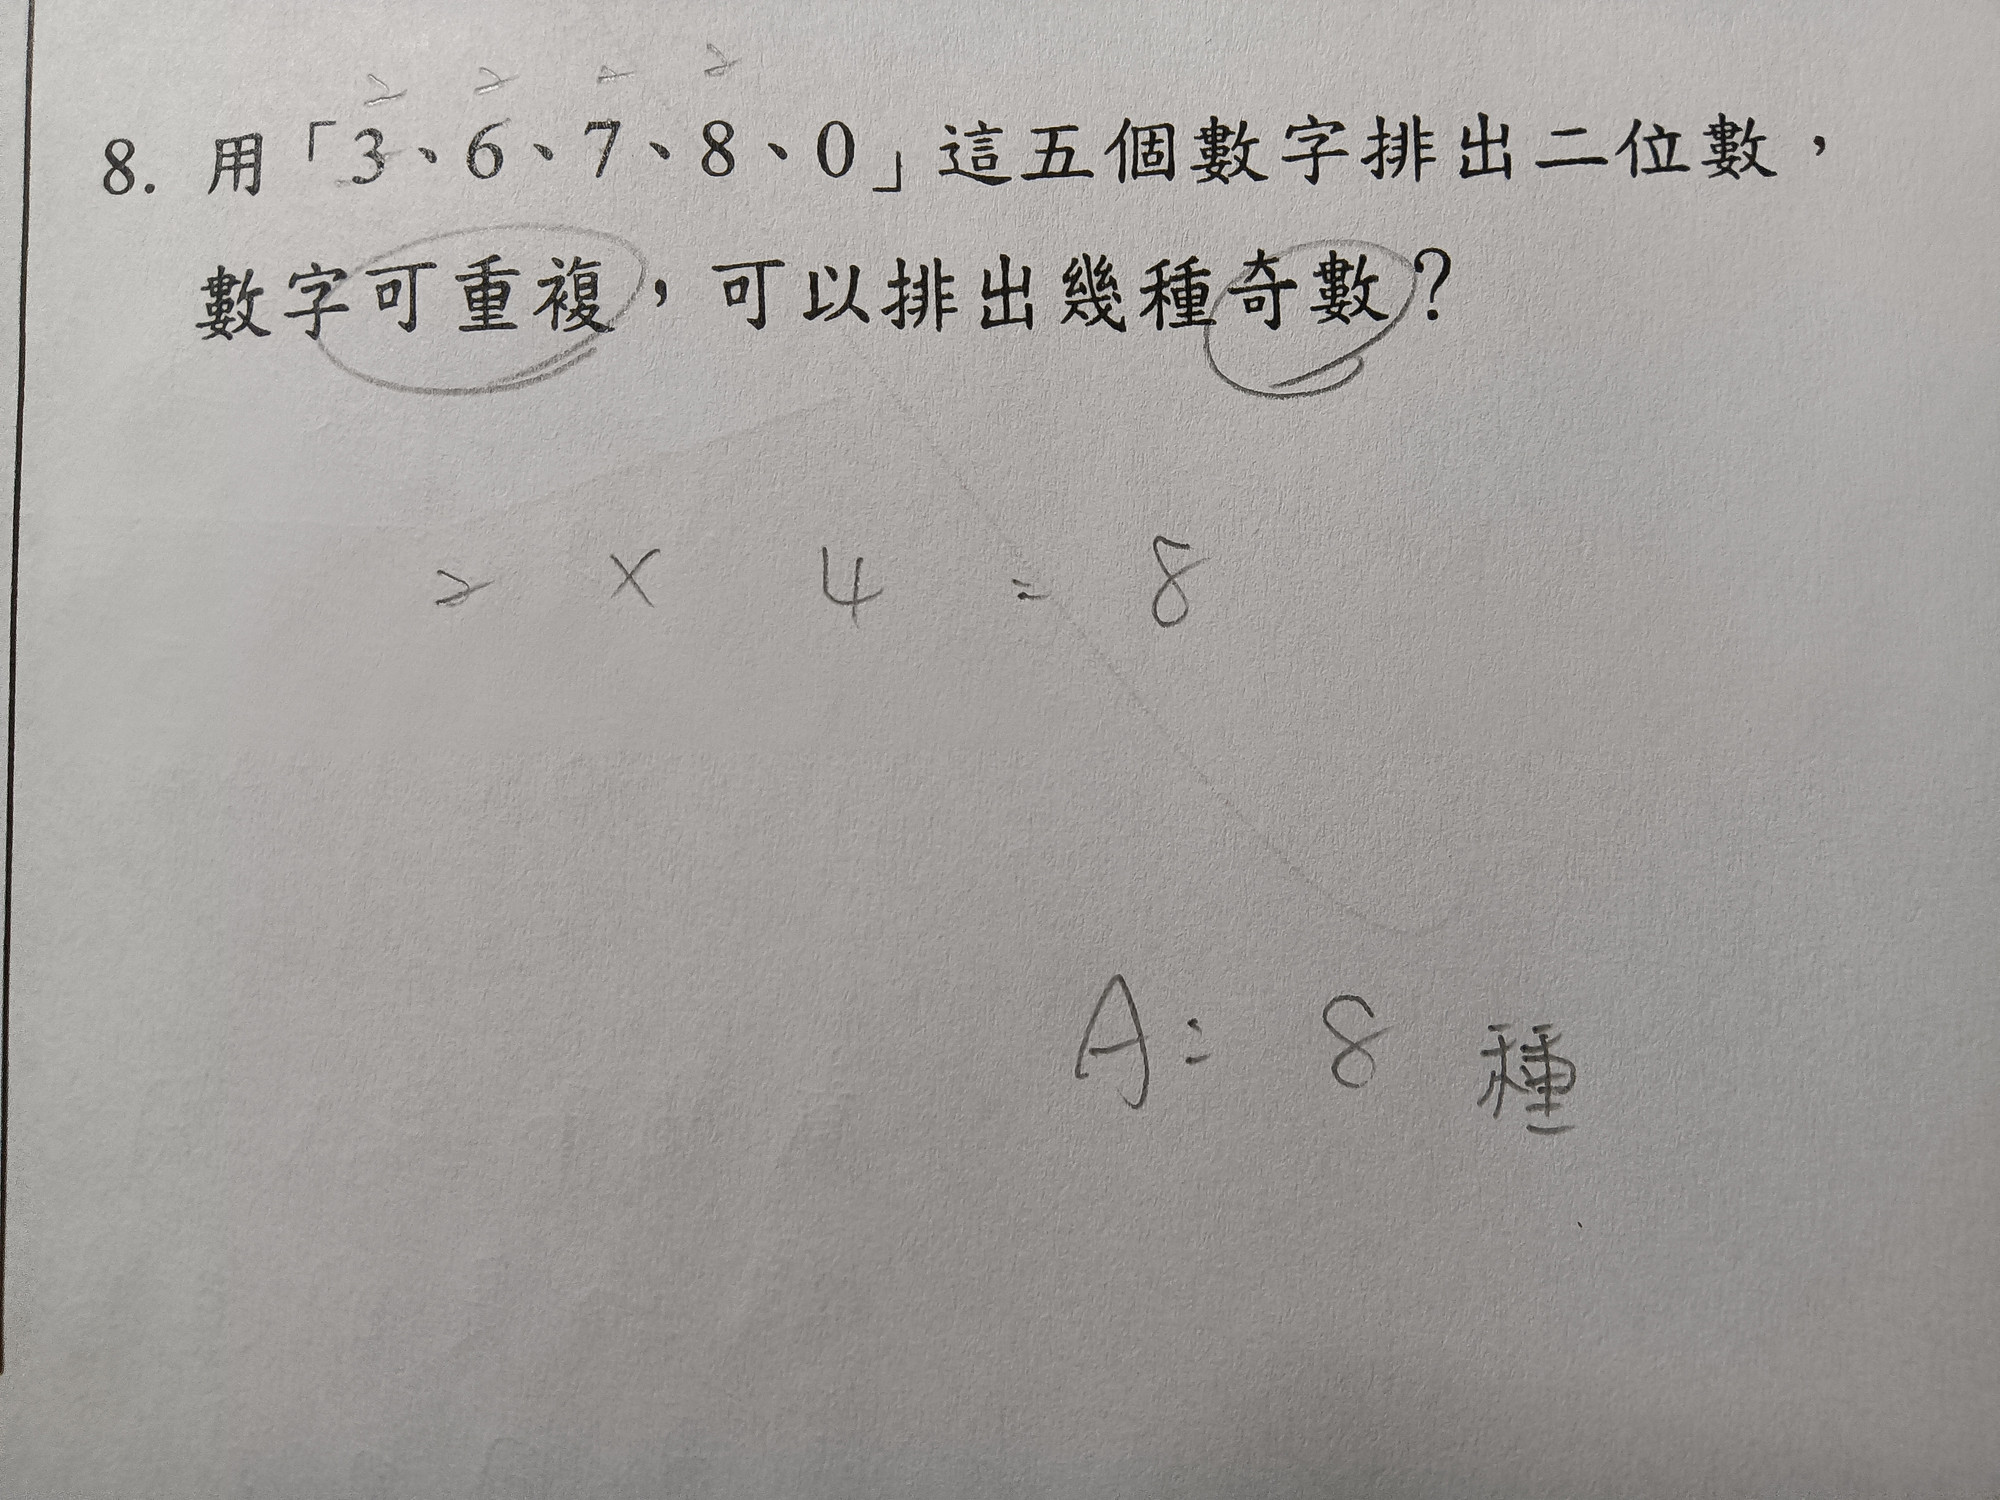 2 2 2 2
8. 用「3、6、7、8、0」這五個數字排出二位數，
數字可重複，可以排出幾種奇數？
2 × 4 = 8
A: 8 種